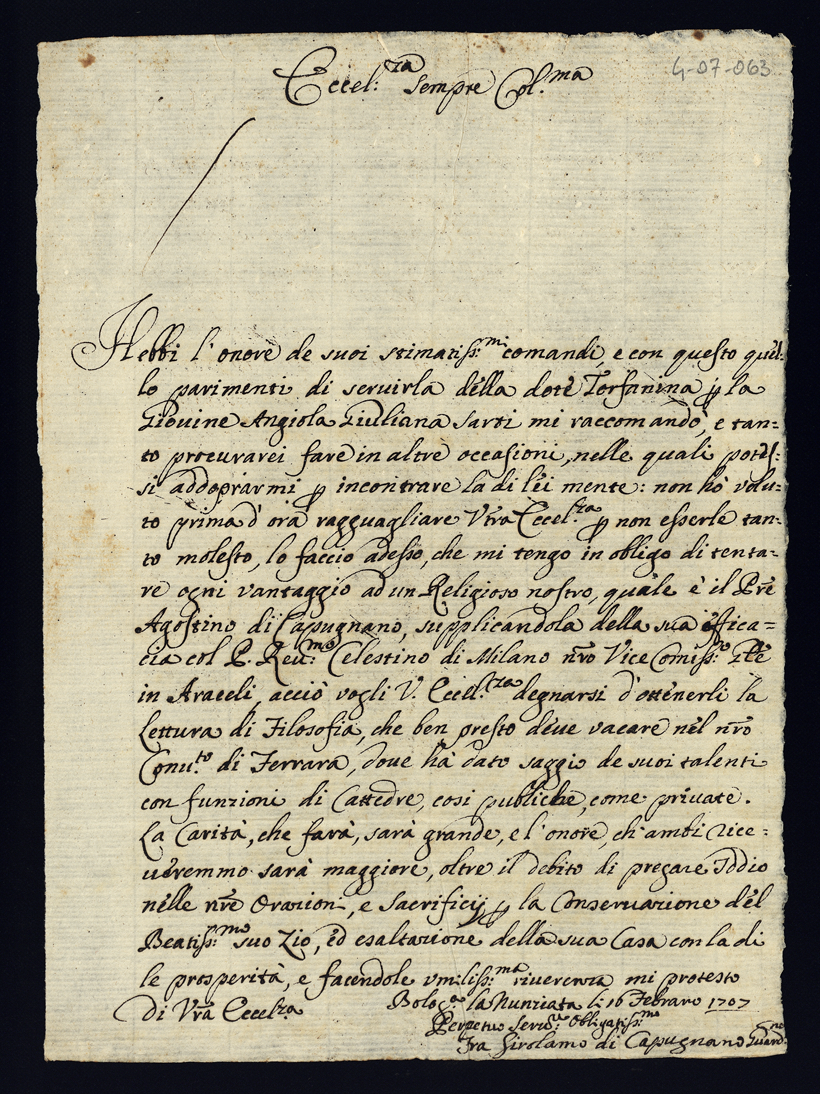 4-07-063
Eccel:za sempre Col.ma
Hebbi l'onore de suoi stimatiss:mi comandi, e con questo quel:
lo parimenti di seruirla della dote Torfanina p la
Giouine Angiola Giuliana Sarti mi raccomandò, e tan=
to procurarei fare in altre occasioni, nelle quali potes:
si addoprarmi p incontrare la di lei mente: non hò volu=
to prima d'ora ragguagliare Vtra Eccel:za p non esserle tan=
to molesto, lo faccio adesso, che mi tengo in obligo di tenta=
re ogni vantaggio ad un Religioso nostro, quale è il Pre
Agostino di Capugnano, supplicandola della sua effica=
cia col P. Reu:mo Celestino di Milano nro Vice Comiss:o Gle
in Araceli, acciò vogli V. Eccel:za degnarsi d'ottenerli la
Lettura di Filosofia, che ben presto deue vacare nel nro
Conu:to di Ferrara, doue hà dato saggio de suoi talenti
con funzioni di Cattedre, cosi publiche, come priuate.
La Carità, che farà, sarà grande, e l'onore, ch'ambi rice=
ueremmo sarà maggiore, oltre il debito di pregare Iddio
nelle nre Orazioni, e Sacrificij p la Conseruazione del
Beatiss:mo suo Zio, ed esaltazione della sua Casa con la di
le prosperità, e facendole vmiliss:ma riuerenza mi protesto
Di Vra Eccelza Bolog:a la Nunziata li 16 Febraro 1707
Perpetuo Seru:e Obligatiss:mo
Fra Girolamo di Capugnano Guard:no